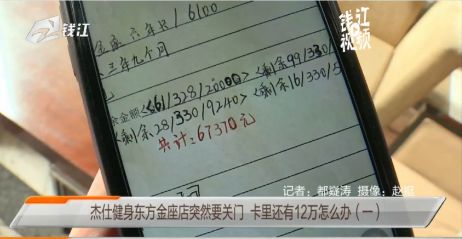 钱江
钱江
视频
金座 六年只/6100
三年九个月
金额 <61/328/20000> <剩余99/330/
<剩余28/330/9240> <剩余16/330/5
共计:67370元
记者：都嶷涛 摄像：赵挺
杰仕健身东方金座店突然要关门 卡里还有12万怎么办（一）